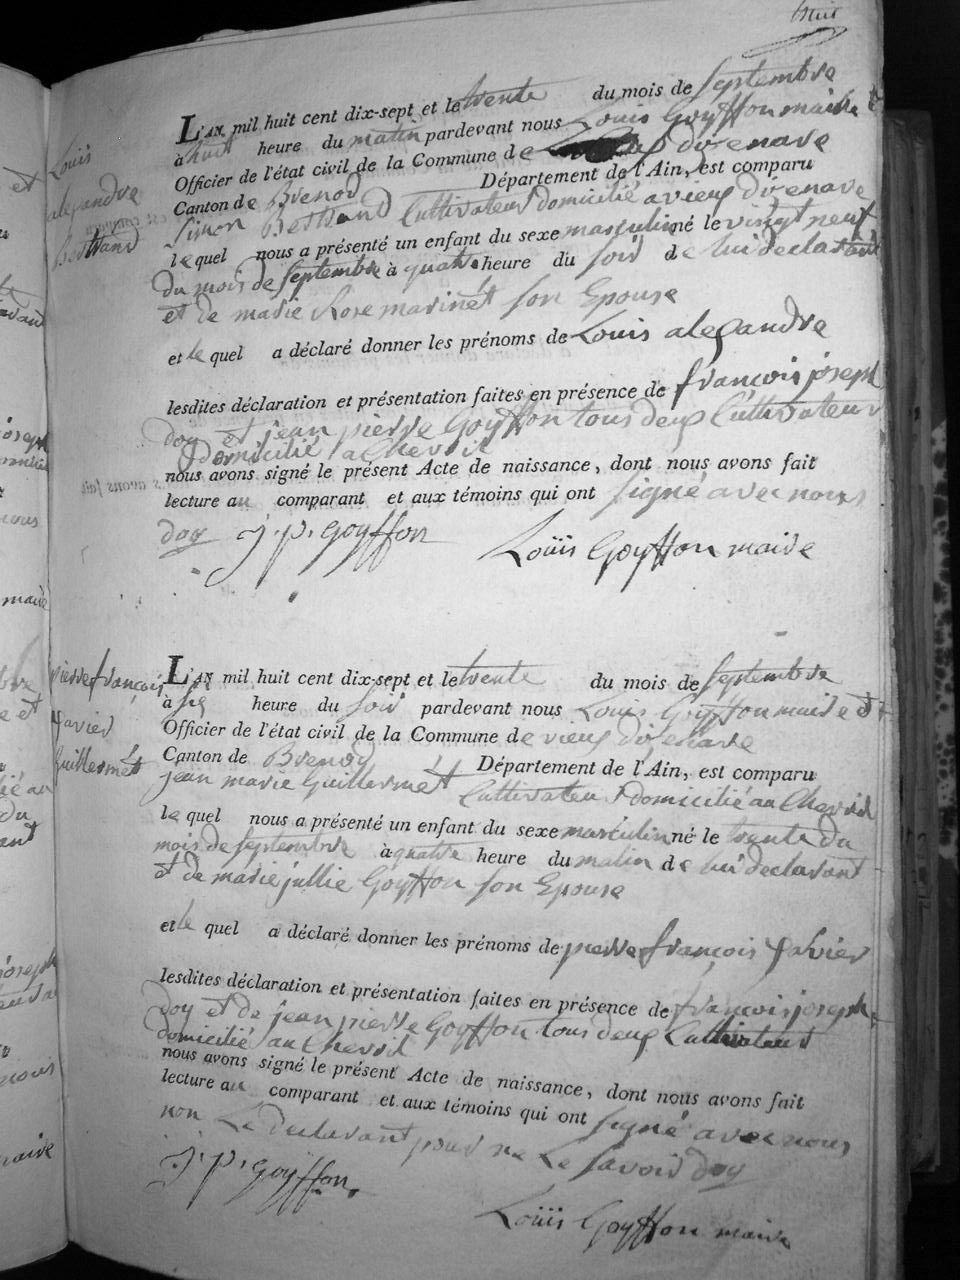 huit
Louis
alexandre
Bertrand
L'AN mil huit cent dix-sept et le trente du mois de septembre
à huit heure du matin pardevant nous Louis Goyffon maire et
Officier de l'état civil de la Commune de vieux d'izenave
Canton de Brenod Département de l'Ain, est comparu
Simon Bertrand Cultivateur domicilié a vieux d'izenave
lequel nous a présenté un enfant du sexe masculin né le vingt neuf
du mois de septembre à quatre heure du soir de lui déclarant
et de marie Rose marinet son Epouse
et le quel a déclaré donner les prénoms de Louis alexandre
lesdites déclaration et présentation faites en présence de françois joseph
doy et jean pierre Goyffon tous deux Cultivateur
domicilié a Chevril
nous avons signé le présent Acte de naissance, dont nous avons fait
lecture au comparant et aux témoins qui ont signé avec nous
doy J. P. Goyffon Louis Goyffon maire
pierre françois
xavier
Guillermet
L'AN mil huit cent dix-sept et le trente du mois de septembre
à six heure du soir pardevant nous Louis Goyffon maire et
Officier de l'état civil de la Commune de vieux d'izenave
Canton de Brenod Département de l'Ain, est comparu
jean marie Guillermet Cultivateur domicilié au Chevril
le quel nous a présenté un enfant du sexe masculin né le trente du
mois de septembre à quatre heure du matin de lui déclarant
et de marie jullie Goyffon son Epouse
et le quel a déclaré donner les prénoms de pierre françois xavier
lesdites déclaration et présentation faites en présence de françois joseph
doy et de jean pierre Goyffon tous deux Cultivateurs
domicilié au Chevril
nous avons signé le présent Acte de naissance, dont nous avons fait
lecture au comparant et aux témoins qui ont signé avec nous
non Le declarant pour ne Le savoir doy
J. P. Goyffon
Louis Goyffon maire